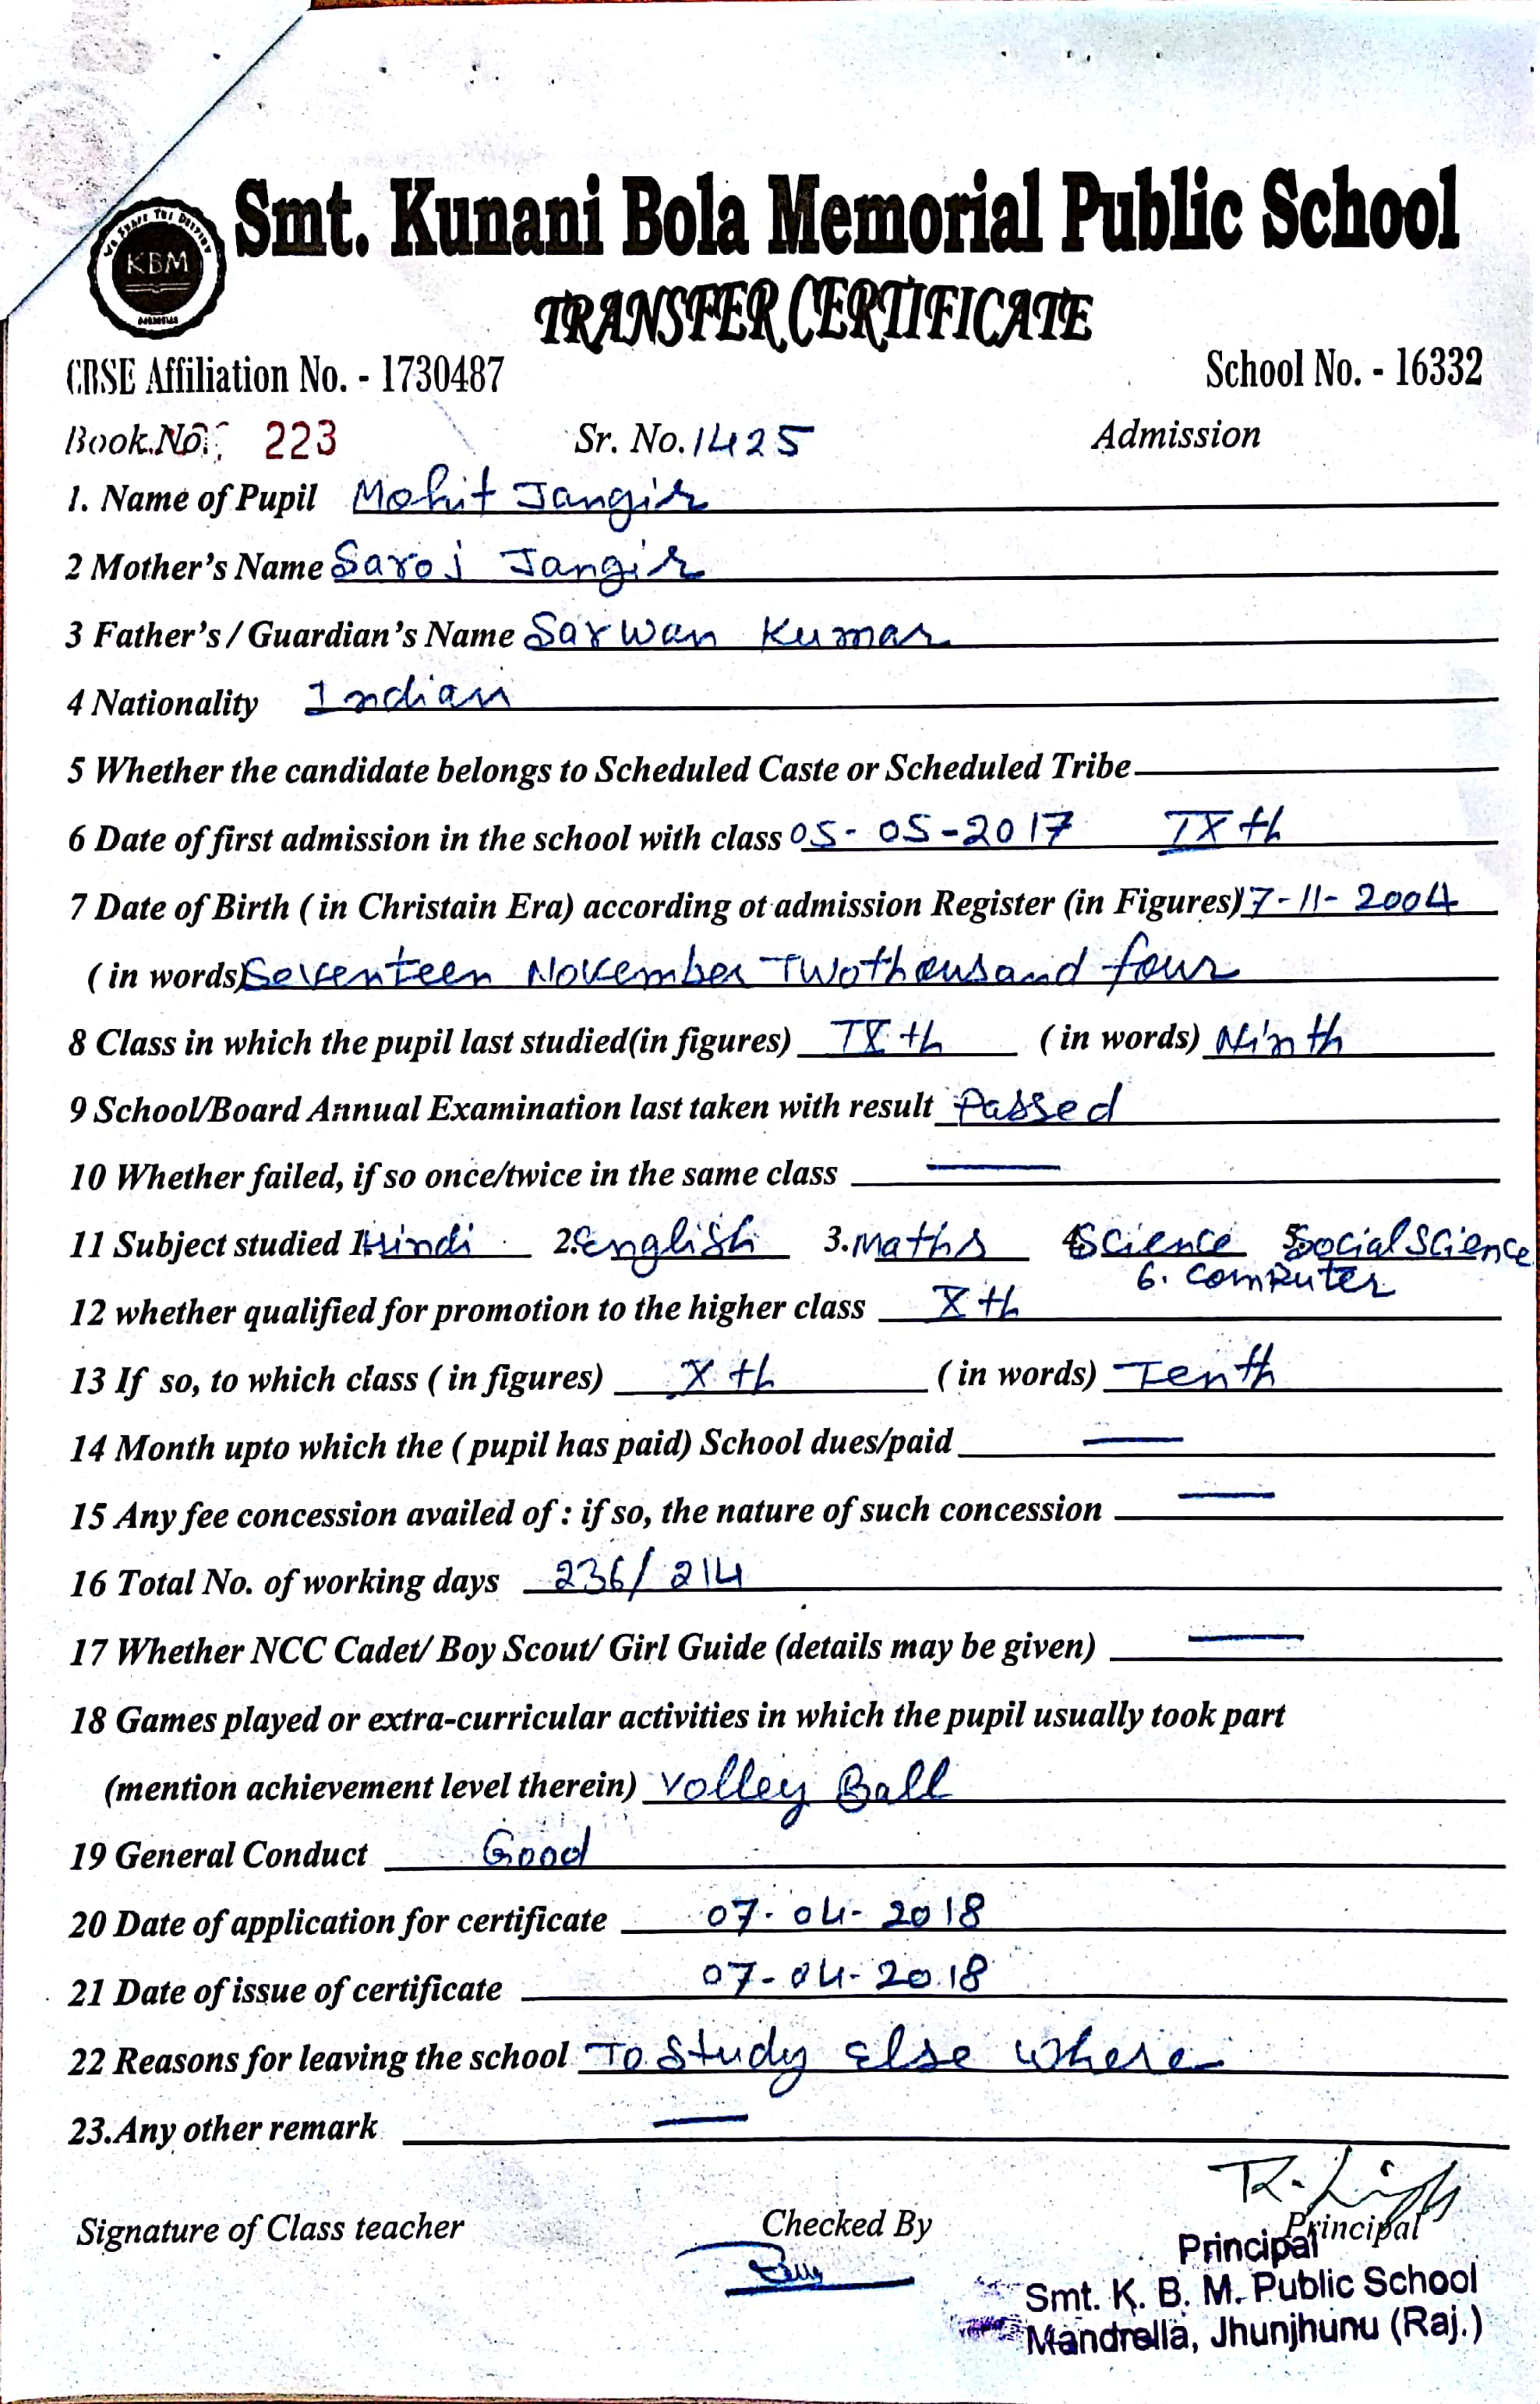 WE SHAPE THE DESTINY
KBM
Smt. Kunani Bola Memorial Public School
TRANSFER CERTIFICATE
CBSE Affiliation No. - 1730487 School No. - 16332
Book.No. 223 Sr. No. 1425 Admission
1. Name of Pupil Mohit Jangir
2 Mother's Name Saroj Jangir
3 Father's / Guardian's Name Sarwan Kumar
4 Nationality Indian
5 Whether the candidate belongs to Scheduled Caste or Scheduled Tribe
6 Date of first admission in the school with class 05-05-2017 IXth
7 Date of Birth ( in Christain Era) according ot admission Register (in Figures) 17-11-2004
( in words) Seventeen November Twothousand four
8 Class in which the pupil last studied(in figures) IXth ( in words) Ninth
9 School/Board Annual Examination last taken with result Passed
10 Whether failed, if so once/twice in the same class —
11 Subject studied 1. Hindi 2. English 3. Maths 4. Science 5. Social Science
6. Computer
12 whether qualified for promotion to the higher class Xth
13 If so, to which class ( in figures) Xth ( in words) Tenth
14 Month upto which the ( pupil has paid) School dues/paid —
15 Any fee concession availed of : if so, the nature of such concession —
16 Total No. of working days 236/214
17 Whether NCC Cadet/ Boy Scout/ Girl Guide (details may be given) —
18 Games played or extra-curricular activities in which the pupil usually took part
(mention achievement level therein) Volley Ball
19 General Conduct Good
20 Date of application for certificate 07-04-2018
21 Date of issue of certificate 07-04-2018
22 Reasons for leaving the school To Study Else Where
23.Any other remark —
Signature of Class teacher Checked By Principal
Principal
Smt. K. B. M. Public School
Mandrella, Jhunjhunu (Raj.)